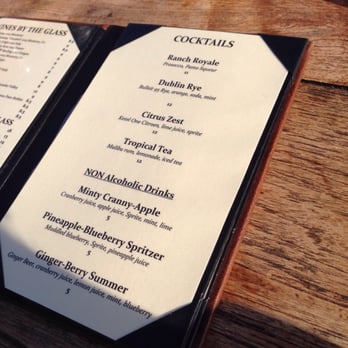 INES BY THE GLASS
COCKTAILS
Ranch Royale
Prosecco, Pama liqueur
12
Dublin Rye
Bulleit 95 Rye, orange, soda, mint
12
Citrus Zest
Ketel One Citroen, lime juice, sprite
12
Tropical Tea
Malibu rum, lemonade, iced tea
12
NON Alcoholic Drinks
Minty Cranny-Apple
Cranberry juice, apple juice, Sprite, mint, lime
5
Pineapple-Blueberry Spritzer
Muddled blueberry, Sprite, pineapple juice
5
Ginger-Berry Summer
Ginger Beer, cranberry juice, lemon juice, mint, blueberry
5